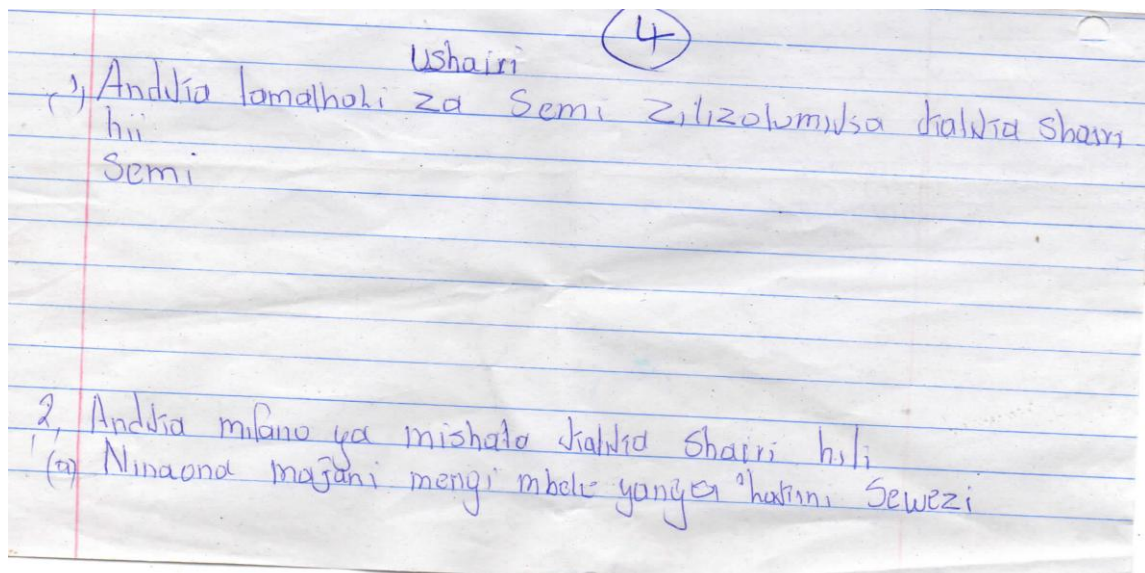 4
Ushairi
1, Andika tamathali za Semi zilizotumika katika Shairi
hii
Semi
2, Andika mifano ya mishata katika Shairi hili
(a) Ninaona majani mengi mbele yangu Sewezi